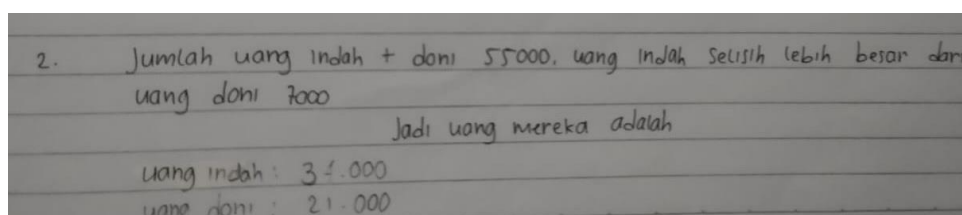 2. Jumlah uang indah + doni 55000. uang indah selisih lebih besar dar
uang doni 7000
Jadi uang mereka adalah
uang indah : .000
uang doni : 21.000